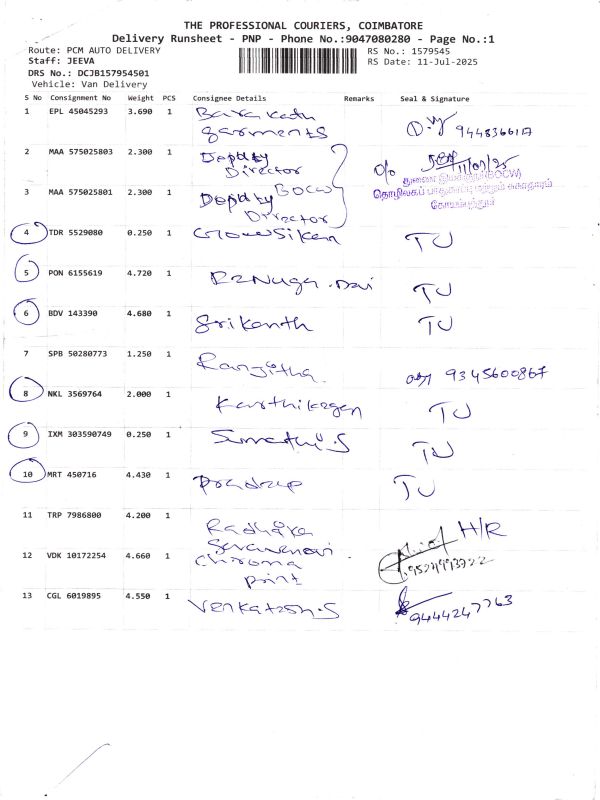 THE PROFESSIONAL COURIERS, COIMBATORE
Delivery Runsheet - PNP - Phone No.:9047080280 - Page No.:1
Route: PCM AUTO DELIVERY RS No.: 1579545
Staff: JEEVA RS Date: 11-Jul-2025
DRS No.: DCJB157954501
Vehicle: Van Delivery
S No Consignment No Weight PCS Consignee Details Remarks Seal & Signature
1 EPL 45045293 3.690 1 Barakath
garments
2 MAA 575025803 2.300 1 Deputy
Director 11/07/25
3 MAA 575025801 2.300 1 Deputy BOCW
Director
4 TDR 5529080 0.250 1 TU
5 PON 6155619 4.720 1 TU
6 BDV 143390 4.680 1 Srikanth TU
7 SPB 50280773 1.250 1 Ranjitha. 9345600867
8 NKL 3569764 2.000 1 Karthikeyan TU
9 IXM 303590749 0.250 1 Sumathi.S TU
10 MRT 450716 4.430 1 TU
11 TRP 7986800 4.200 1 H/R
12 VDK 10172254 4.660 1
print
13 CGL 6019895 4.550 1 Venkatesh.S 9444247763